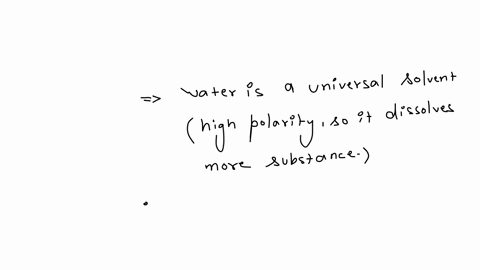 => water is a universal solvent
(high polarity, so it dissolves
more substance.)